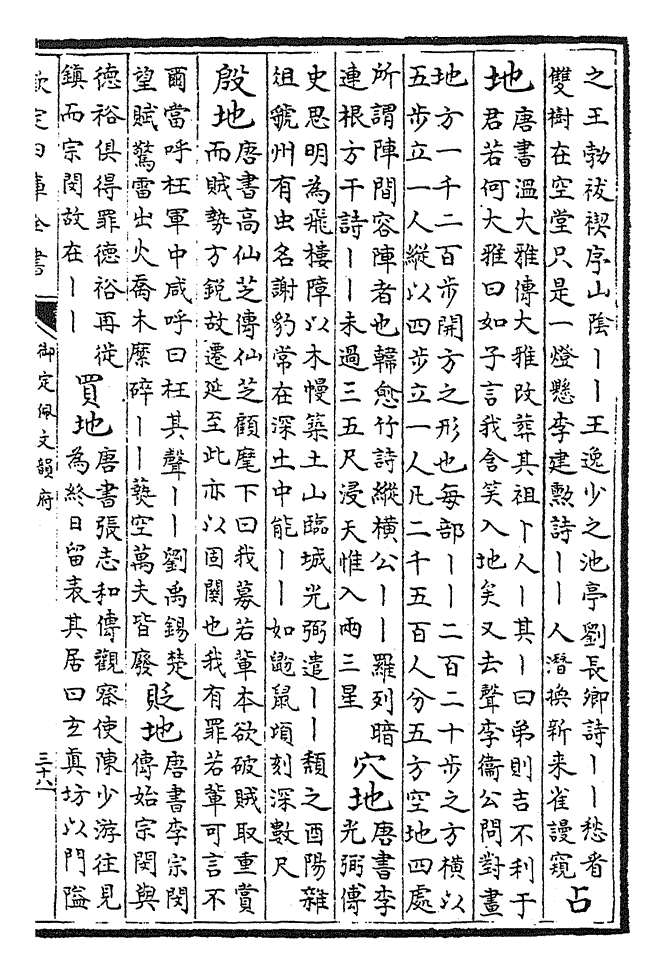 之王勃祓禊序山陰丨丨王逸少之池亭劉長卿詩丨丨愁看
雙樹在空堂只是一燈懸李建勲詩丨丨人潛換新来雀謾窺
占
地
唐書溫大雅傳大雅改葬其祖卜人丨其丨曰弟則吉不利于
君若何大雅曰如子言我含笑入地矣又去聲李衞公問對畫
地方一千二百步開方之形也每部丨丨二百二十步之方横以
五步立一人縱以四步立一人凡二千五百人分五方空地四處
所謂陣間容陣者也韓愈竹詩縱横公丨丨羅列暗
連根方干詩丨丨未過三五尺浸天惟入兩三星
穴地
唐書李
光弼傳
史思明為飛樓障以木幔築土山臨城光弼遣丨丨頽之酉陽雜
俎虢州有虫名謝豹常在深土中能丨丨如鼢鼠頃刻深數尺
殷地
唐書高仙芝傳仙芝顧麾下曰我募若輩本欲破賊取重賞
而賊勢方鋭故遷延至此亦以固關也我有罪若輩可言不
爾當呼枉軍中咸呼曰枉其聲丨丨劉禹錫楚
望賦驚雷出火喬木糜碎丨丨爇空萬夫皆廢
貶地
唐書李宗閔
傳始宗閔與
德裕俱得罪德裕再徙
鎮而宗閔故在丨丨
買地
唐書張志和傳觀察使陳少游往見
為終日留表其居曰玄真坊以門隘
欽定四庫全書
御定佩文韻府
三十八